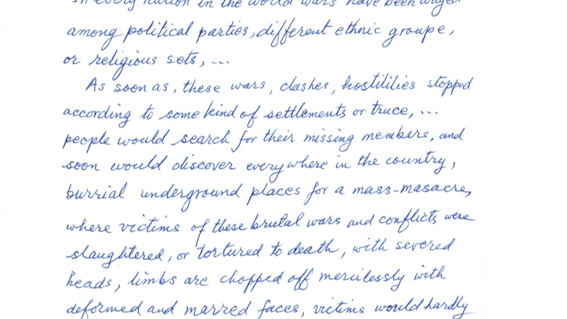 In every nation in the world wars have been waged
among political parties, different ethnic groupe,
or religious sets, ...
As soon as, these wars, clashes, hostilities stopped
according to some kind of settlements or truce, ...
people would search for their missing members, and
soon would discover everywhere in the country,
burrial underground places for a mass-masacre,
where victims of these brutal wars and conflicts were
slaughtered, or tortured to death, with severed
heads, limbs are chopped off mercilessly with
deformed and marred faces, victims would hardly